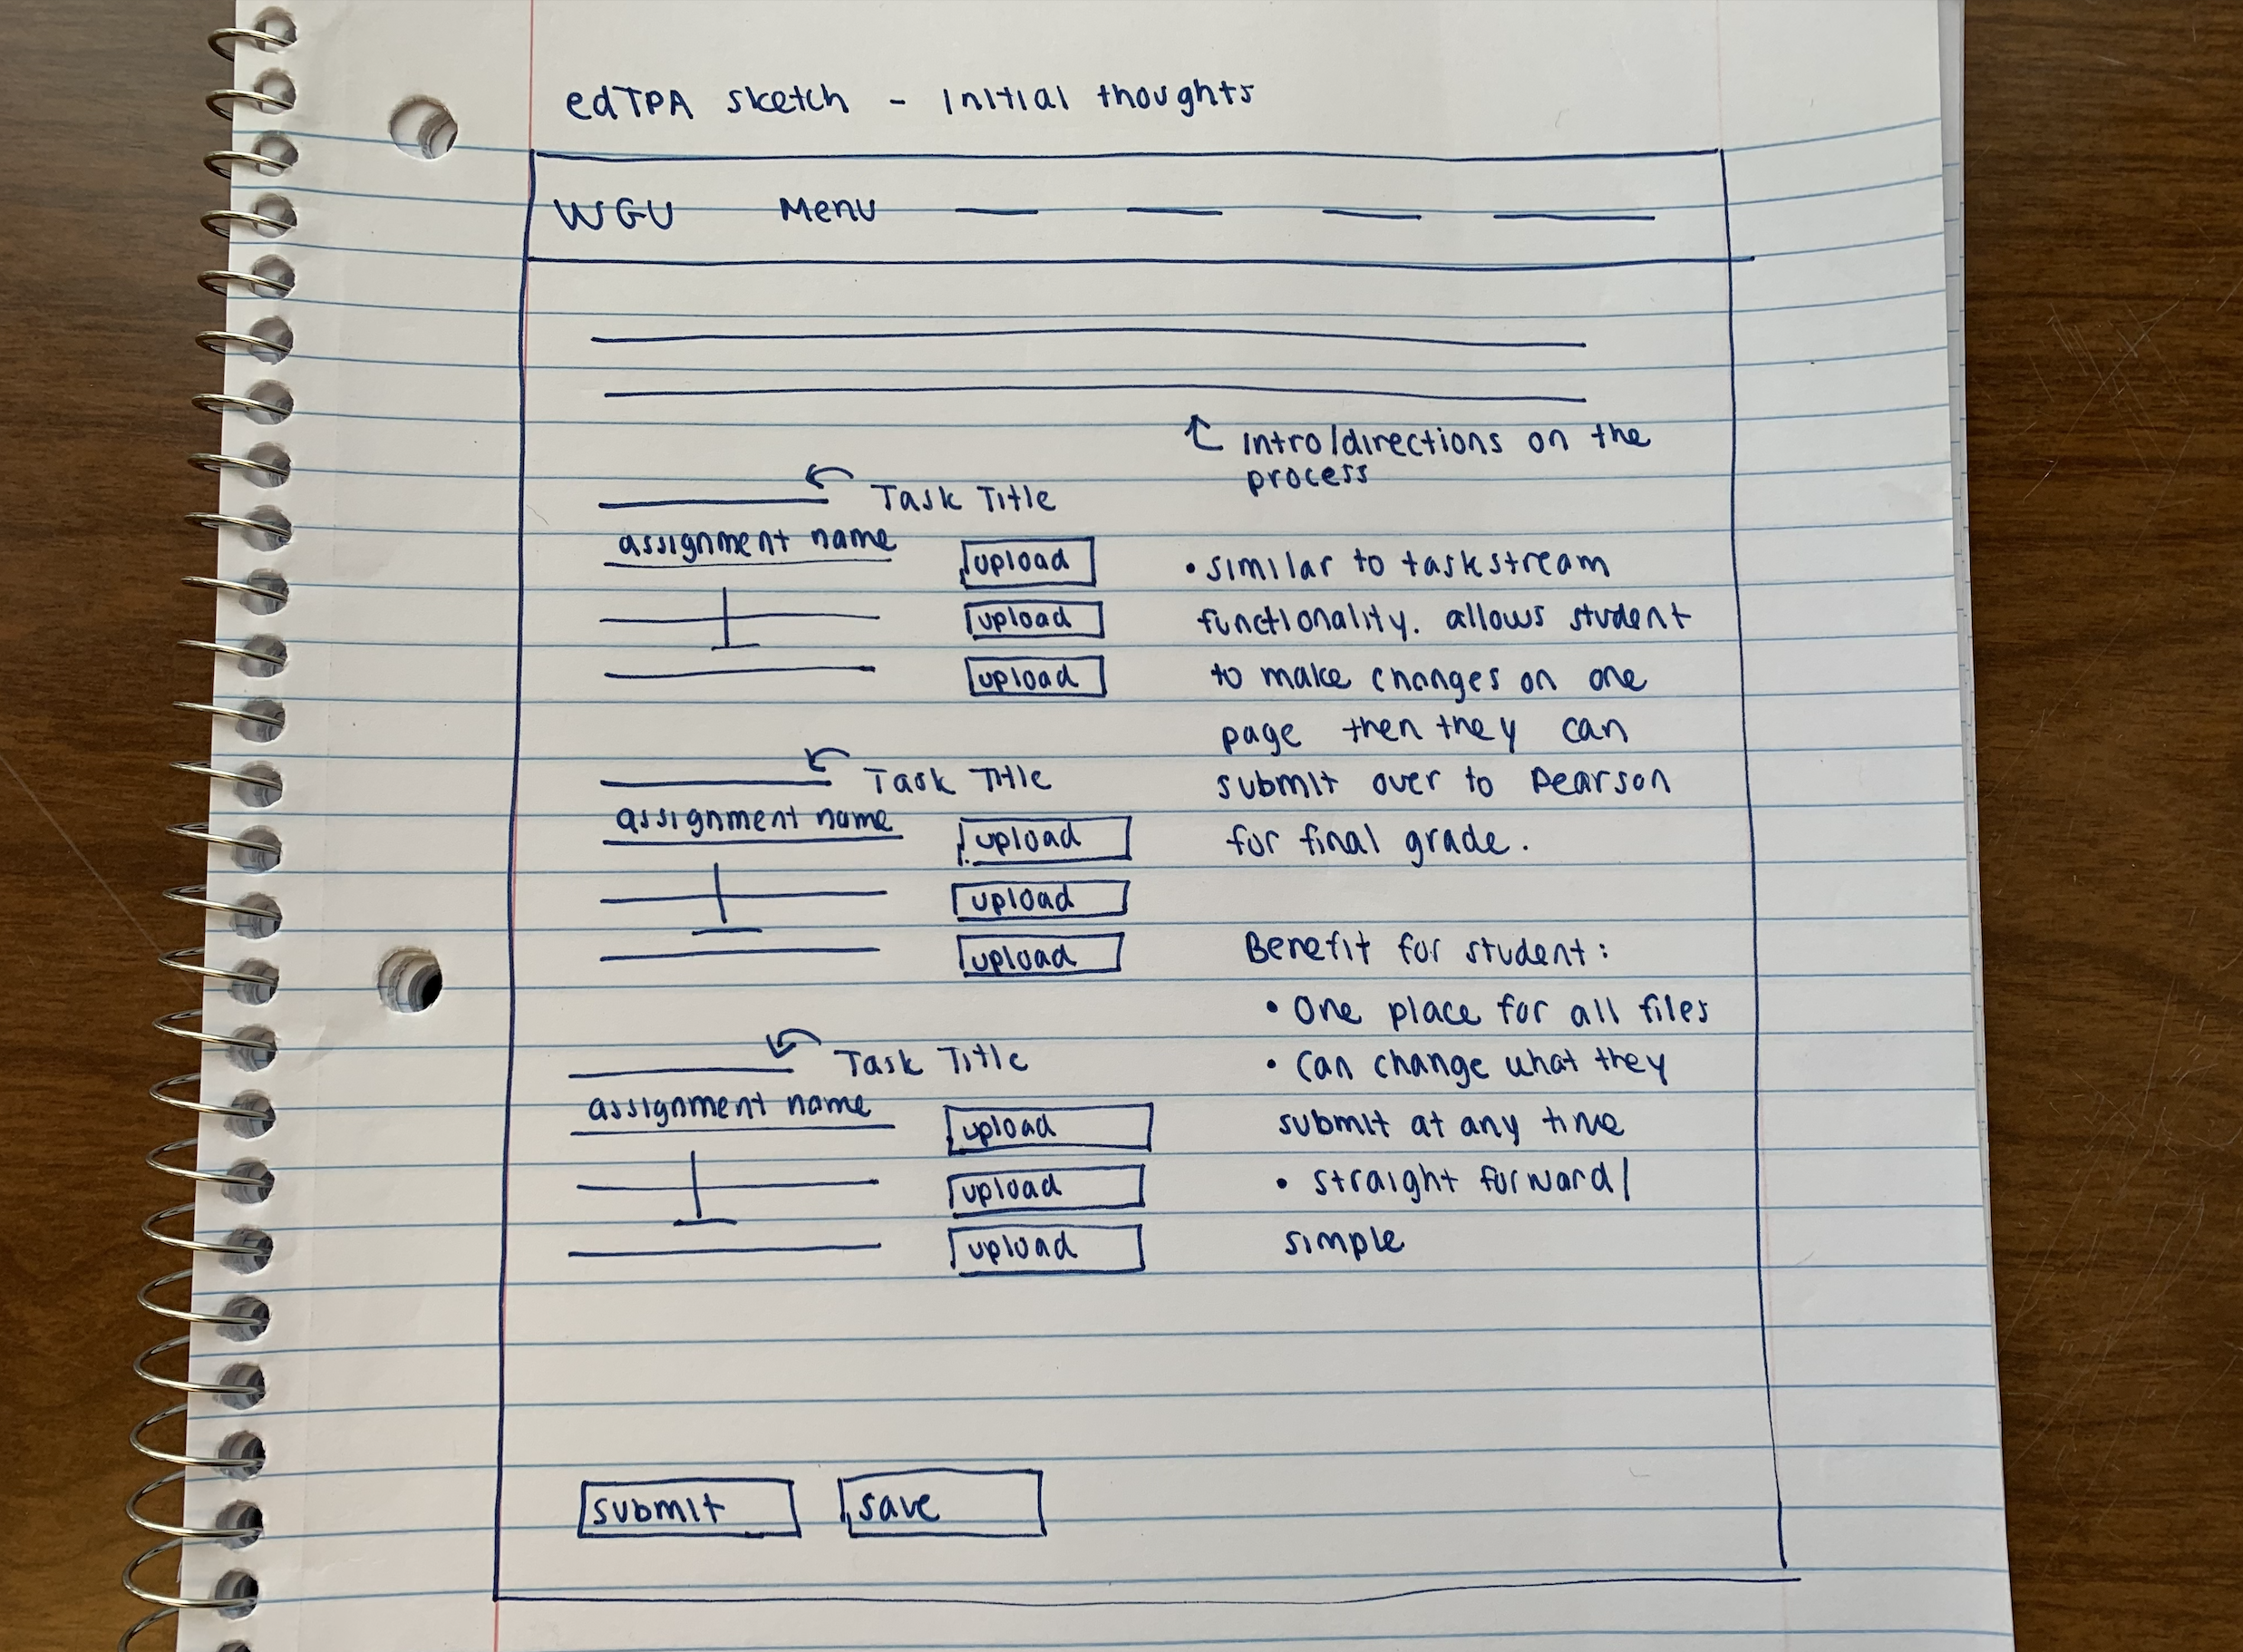 edTPA sketch - Initial thoughts
WGU Menu
Intro/directions on the
process
Task Title
assignment name
upload
upload
upload
• similar to taskstream
functionality. allows student
to make changes on one
page then they can
submit over to Pearson
for final grade.
Task Title
assignment name
upload
upload
upload
Benefit for student:
• One place for all files
• Can change what they
submit at any time
• straight forward/
simple
Task Title
assignment name
upload
upload
upload
submit save